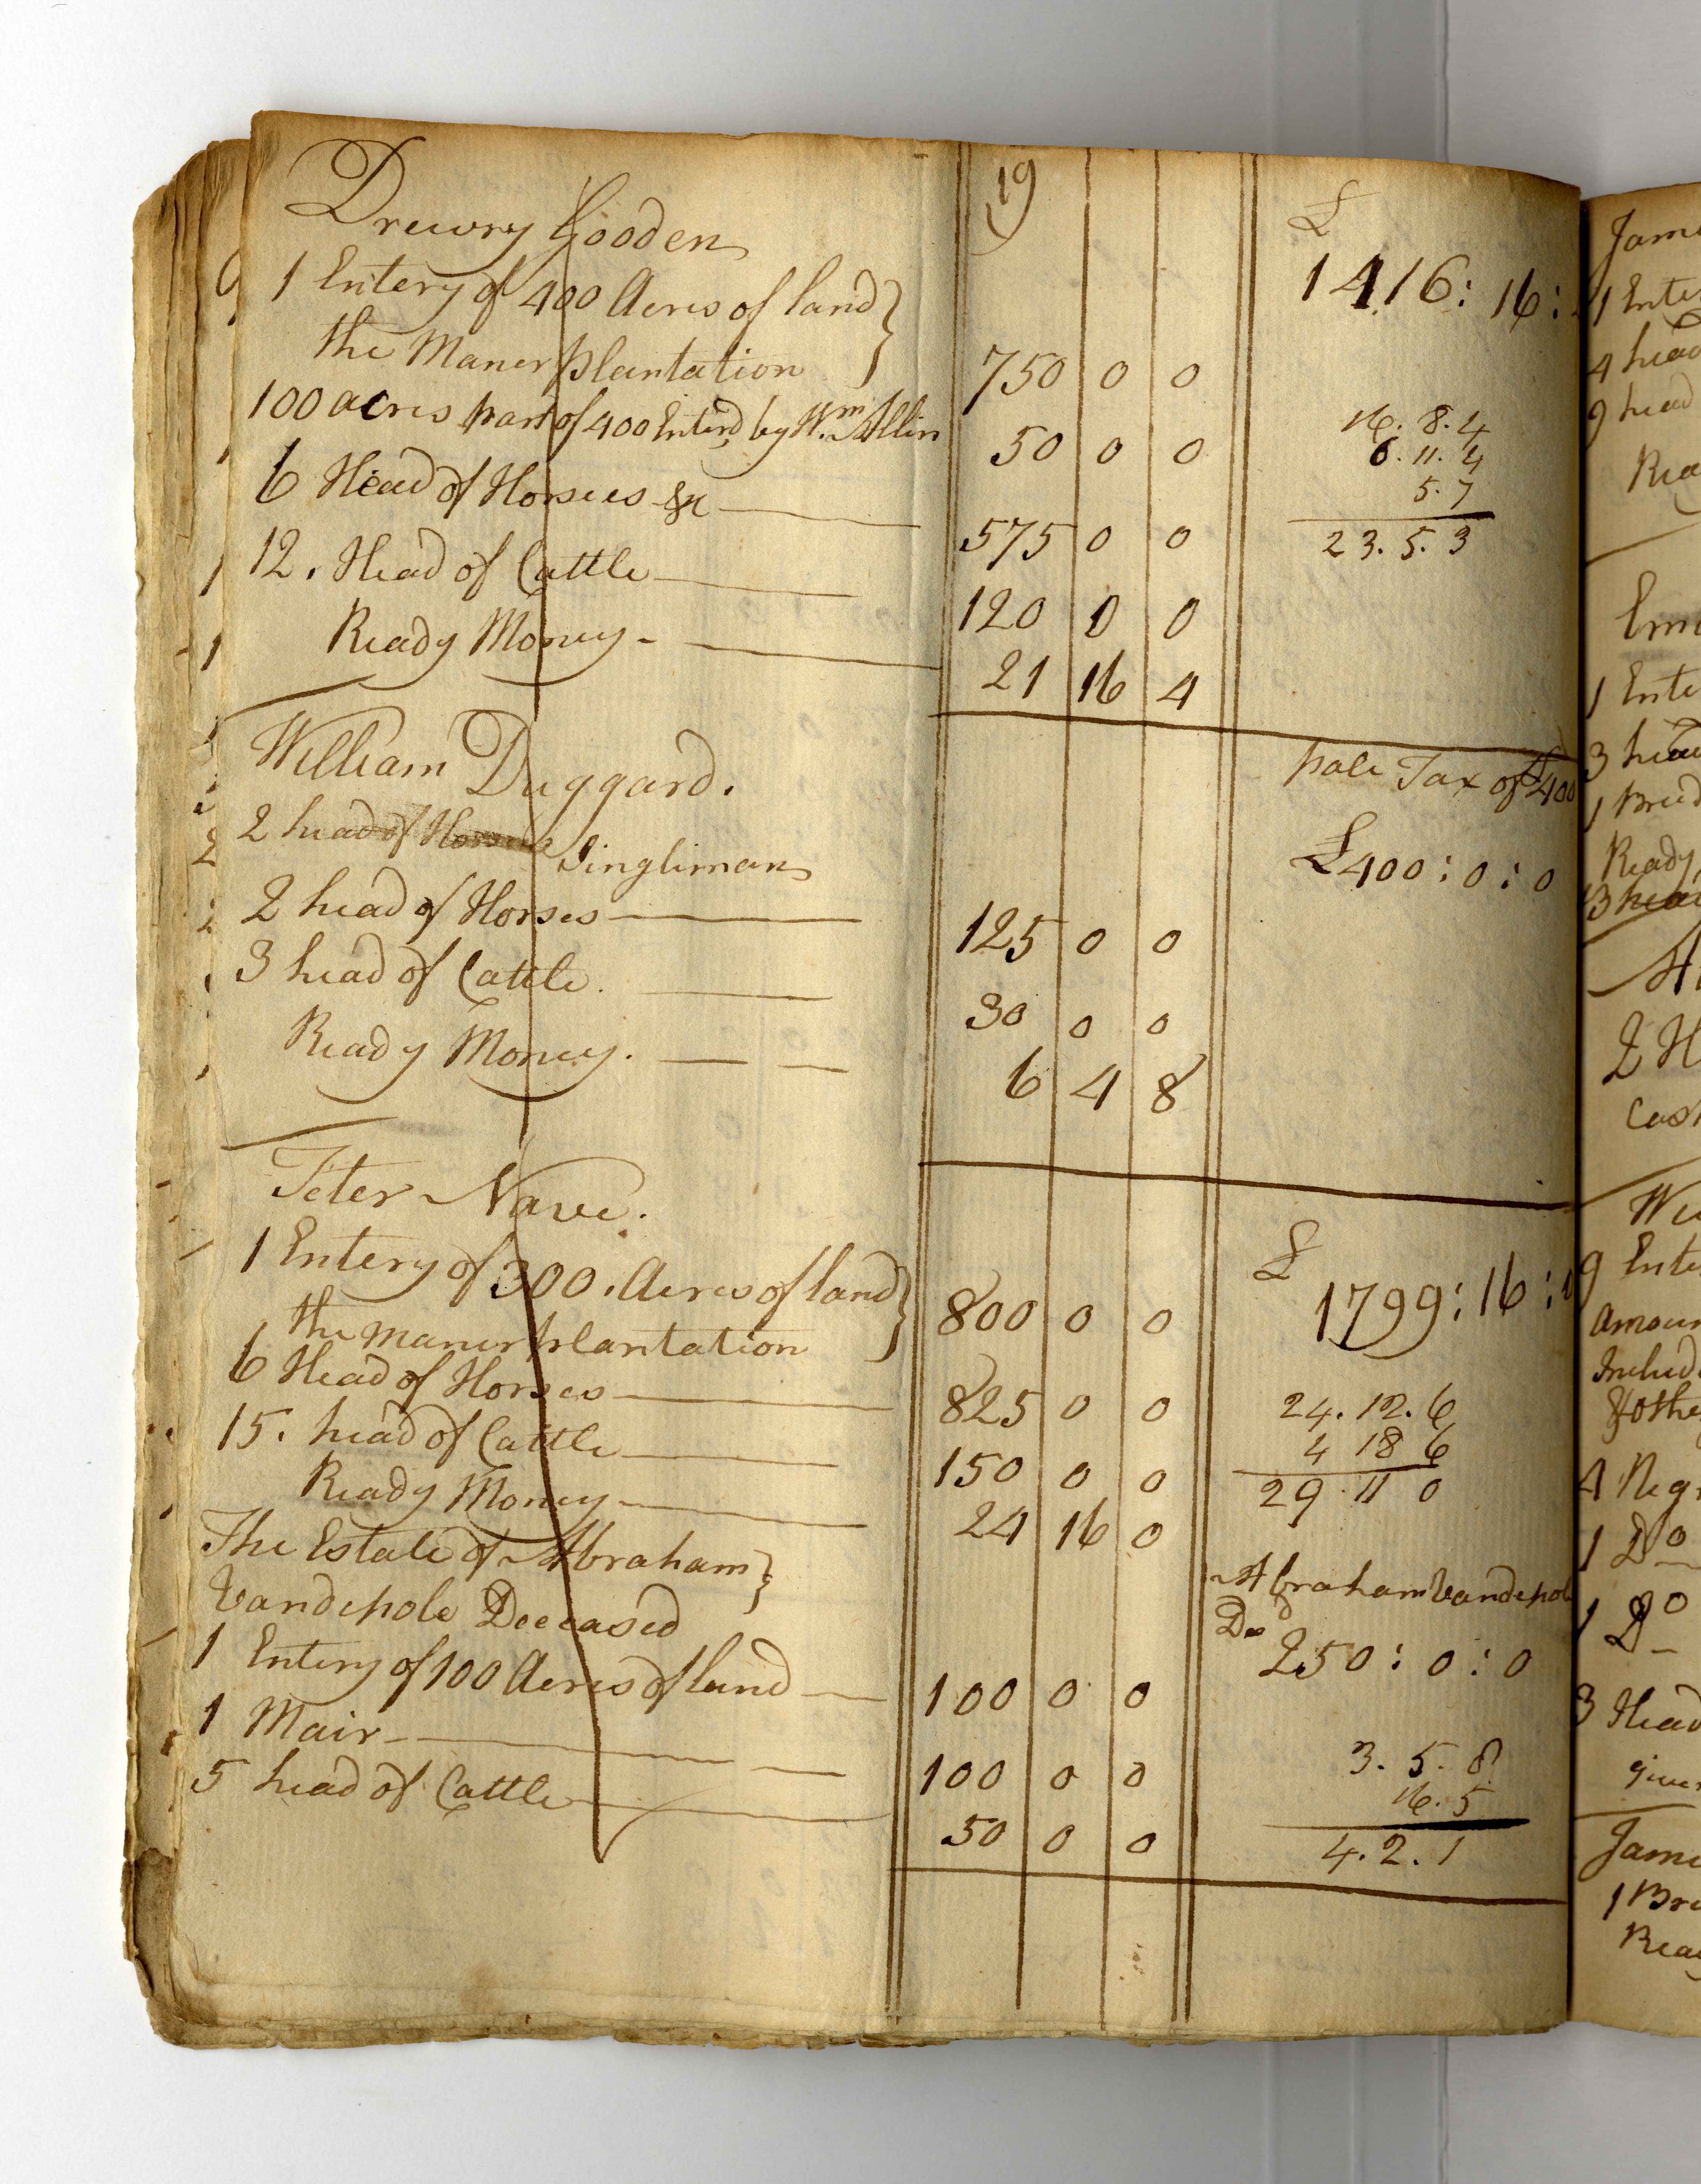 19
Drewry Gooden £
1 Entery of 400 Acres of land } 1416: 16:
the Maner plantation 750 0 0
100 acres part of 400 Enterd, by Wm. Allin 50 0 0
16. 8. 4
6. 11. 4
5. 7
23. 5. 3
6 Head of Horses &c 575 0 0
12. Head of Cattle 120 0 0
Ready Money - 21 16 4
William Duggard. pole Tax of £400
2 head of Horses Singleman £400: 0: 0
2 head of Horses 125 0 0
3 head of Cattle. 30 0 0
Ready Money. 6 4 8
Peter Nave. £
1 Entery of 300. Acres of land } 1799: 16:
the maner plantation 800 0 0
6 Head of Horses 825 0 0
15. head of Cattle 150 0 0
Ready Money 24 16 0
24. 12. 6
4 18 6
29. 11 0
The Estate of Abraham } Abraham Vandepole
Vandepole Deceased Decd
250: 0: 0
1 Entery of 100 Acres of land 100 0 0
1 Mair 100 0 0
5 head of Cattle 50 0 0
3. 5. 8
16. 5
4. 2. 1
1 Ente
4 head
9 head
Rea
1 Ente
3 head
Ready
2 H
Cash
9 Ente
Amoun
Includ
& othe
4 Negr
1 Do
1 Do
3 Head
given
Jame
1 Bre
Rea